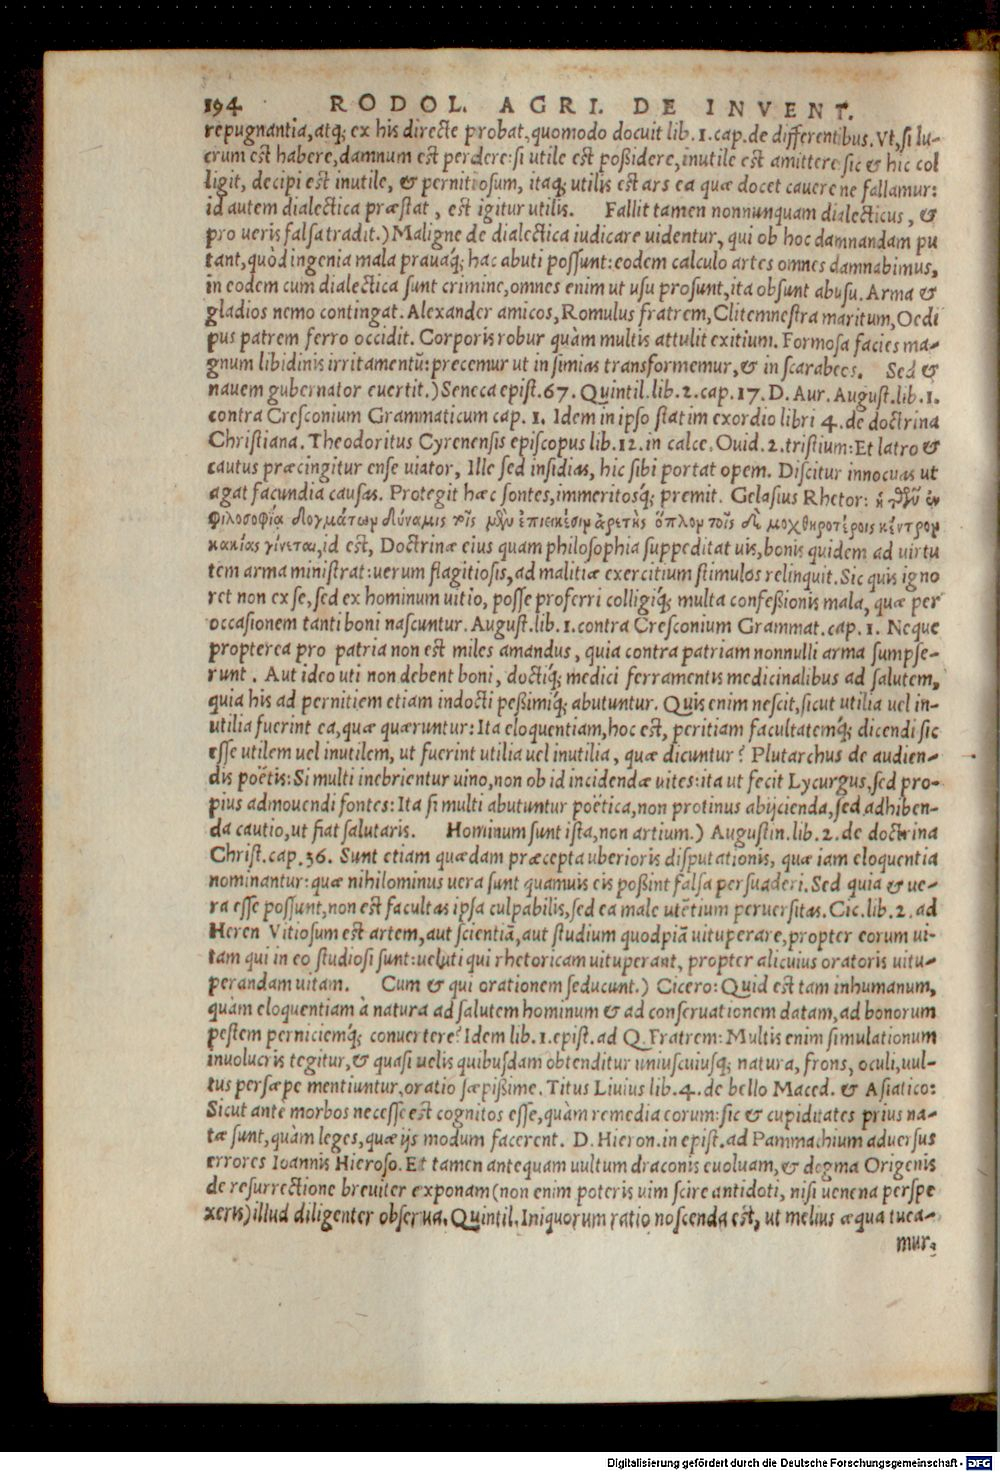 194 RODOL. AGRI. DE INVENT.
repugnantia, atq; ex his directe probat, quomodo docuit lib. 1. cap. de differentibus. Vt, si lu-
crum est habere, damnum est perdere: si utile est poßidere, inutile est amittere: sic & hic col
ligit, decipi est inutile, & pernitiosum, itaq; utilis est ars ea quæ docet cauere ne fallamur:
id autem dialectica præstat, est igitur utilis. Fallit tamen nonnunquam dialecticus, &
pro ueris falsa tradit.) Maligne de dialectica iudicare uidentur, qui ob hoc damnandam pu
tant, quòd ingenia mala prauaq; hac abuti possunt: eodem calculo artes omnes damnabimus,
in eodem cum dialectica sunt crimine, omnes enim ut usu prosunt, ita obsunt abusu. Arma &
gladios nemo contingat. Alexander amicos, Romulus fratrem, Clitemnestra maritum, Oedi
pus patrem ferro occidit. Corporis robur quàm multis attulit exitium. Formosa facies ma-
gnum libidinis irritamentū: precemur ut in simias transformemur, & in scarabeos. Sed &
nauem gubernator euertit.) Seneca epist. 67. Quintil. lib. 2. cap. 17. D. Aur. August. lib. 1.
contra Cresconium Grammaticum cap. 1. Idem in ipso statim exordio libri 4. de doctrina
Christiana. Theodoritus Cyrenensis episcopus lib. 12. in calce. Ouid. 2. tristium: Et latro &
cautus præcingitur ense uiator, Ille sed insidias, hic sibi portat opem. Discitur innocuas ut
agat facundia causas. Protegit hæc sontes, immeritosq́; premit. Gelasius Rhetor: ἡ τῶν ἐν
φιλοσοφίᾳ δογμάτων δύναμις τοῖς μὲν ἐπιεικέσιν ἀρετῆς ὅπλον τοῖς δὲ μοχθηροτέροις κέντρον
κακίας γίνεται, id est, Doctrinæ eius quam philosophia suppeditat uis, bonis quidem ad uirtu
tem arma ministrat: uerum flagitiosis, ad malitiæ exercitium stimulos relinquit. Sic quis igno
ret non ex se, sed ex hominum uitio, posse proferri colligiq́; multa confeßionis mala, quæ per
occasionem tanti boni nascuntur. August. lib. 1. contra Cresconium Grammat. cap. 1. Neque
propterea pro patria non est miles amandus, quia contra patriam nonnulli arma sumpse-
runt. Aut ideo uti non debent boni, doctiq́; medici ferramentis medicinalibus ad salutem,
quia his ad pernitiem etiam indocti peßimiq́; abutuntur. Quis enim nescit, sicut utilia uel in-
utilia fuerint ea, quæ quæruntur: Ita eloquentiam, hoc est, peritiam facultatemq́; dicendi sic
esse utilem uel inutilem, ut fuerint utilia uel inutilia, quæ dicuntur? Plutarchus de audien-
dis poëtis: Si multi inebrientur uino, non ob id incidendæ uites: ita ut fecit Lycurgus, sed pro-
pius admouendi fontes: Ita si multi abutuntur poëtica, non protinus abijcienda, sed adhiben-
da cautio, ut fiat salutaris. Hominum sunt ista, non artium.) Augustin. lib. 2. de doctrina
Christ. cap. 36. Sunt etiam quædam præcepta uberioris disputationis, quæ iam eloquentia
nominantur: quæ nihilominus uera sunt quamuis eis poßint falsa persuaderi. Sed quia & ue-
ra esse possunt, non est facultas ipsa culpabilis, sed ea male utētium peruersitas. Cic. lib. 2. ad
Heren Vitiosum est artem, aut scientiā, aut studium quodpiā uituperare, propter eorum ui-
tam qui in eo studiosi sunt: ueluti qui rhetoricam uituperant, propter alicuius oratoris uitu-
perandam uitam. Cum & qui orationem seducunt.) Cicero: Quid est tam inhumanum,
quàm eloquentiam à natura ad salutem hominum & ad conseruationem datam, ad bonorum
pestem perniciemq́; conuertere? Idem lib. 1. epist. ad Q. Fratrem: Multis enim simulationum
inuolucris tegitur, & quasi uelis quibusdam obtenditur uniuscuiusq; natura, frons, oculi, uul-
tus persæpe mentiuntur, oratio sæpißime. Titus Liuius lib. 4. de bello Maced. & Asiatico:
Sicut ante morbos necesse est cognitos esse, quàm remedia eorum: sic & cupiditates prius na-
tæ sunt, quàm leges, quæ ijs modum facerent. D. Hieron. in epist. ad Pammachium aduersus
errores Ioannis Hieroso. Et tamen antequam uultum draconis euoluam, & dogma Origenis
de resurrectione breuiter exponam (non enim poteris uim scire antidoti, nisi uenena perspe
xeris) illud diligenter obserua. Quintil. Iniquorum ratio noscenda est, ut melius æqua tuea-
mur.
Digitalisierung gefördert durch die Deutsche Forschungsgemeinschaft - DFG